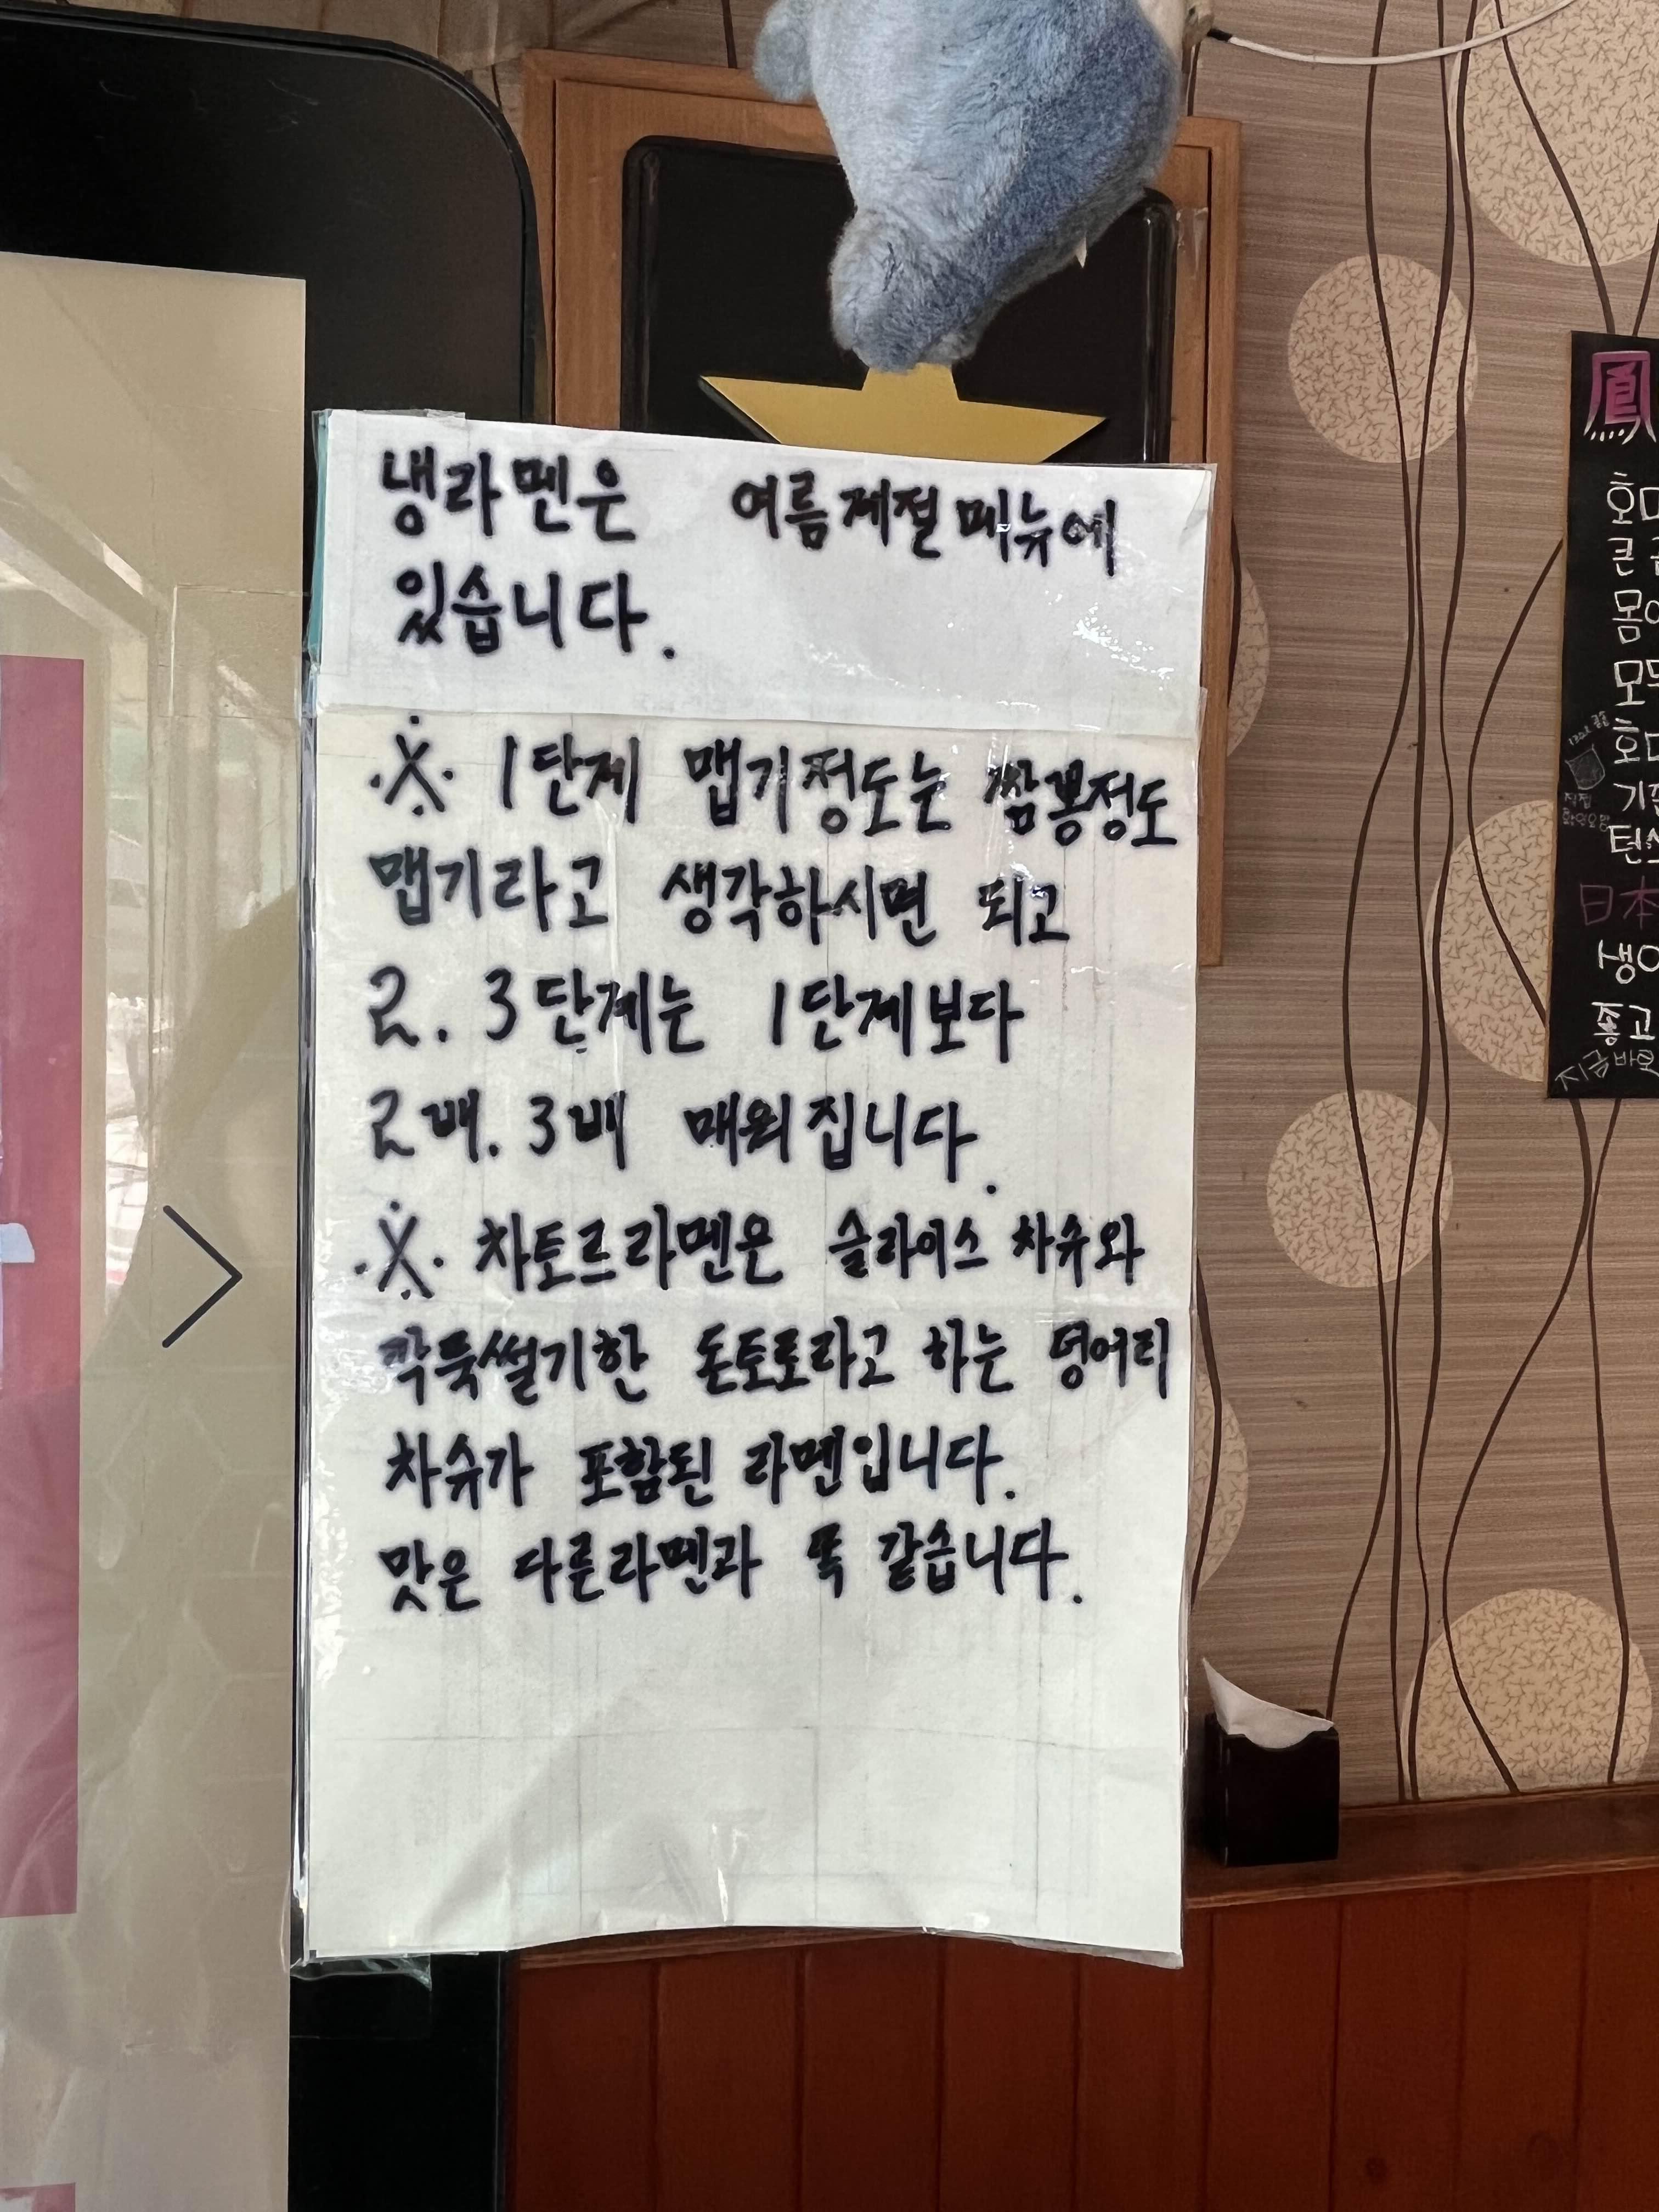 냉라멘은 여름계절메뉴에
있습니다.
※ 1단계 맵기정도는 짬뽕정도
맵기라고 생각하시면 되고
2. 3단계는 1단계보다
2배. 3배 매워집니다.
※ 차토르라멘은 슬라이스 차슈와
깍뚝썰기한 돈토로라고 하는 덩어리
차슈가 포함된 라멘입니다.
맛은 다른라멘과 똑 같습니다.
鳳
호
큰
몸
모
호
기
턴
日本
생
좋고
지금바로